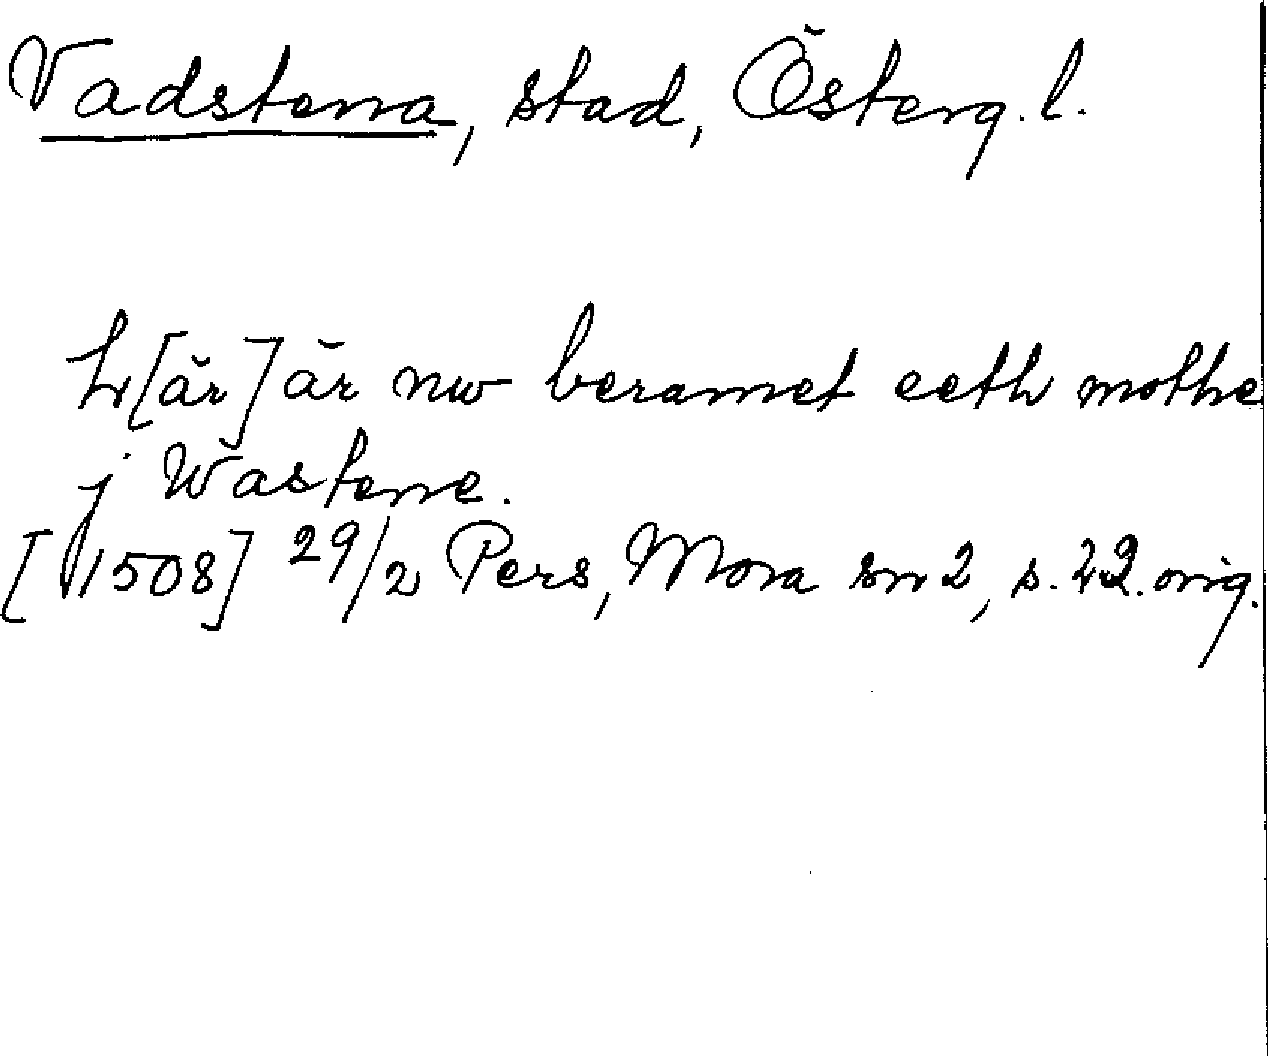 Vadstena, stad, Österg. l.
h[är] är nw beramet eeth mothe
j Wastene.
[1508] 29/2 Pers, Mora sn 2, s. 42. orig.